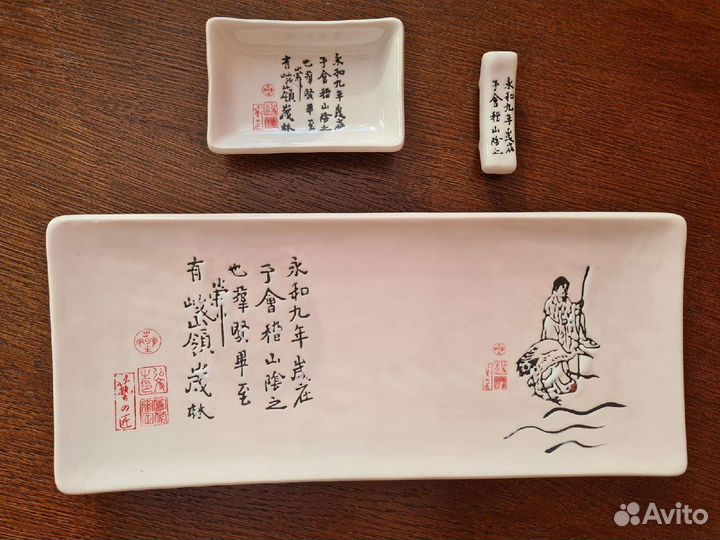 永和九年歲在
于會稽山陰之
也羣賢畢至
有峻嶺茂林
永和九年歲在
于會稽山陰之
永和九年歲在
于會稽山陰之
也羣賢畢至
有峻嶺茂林
の匠
Avito